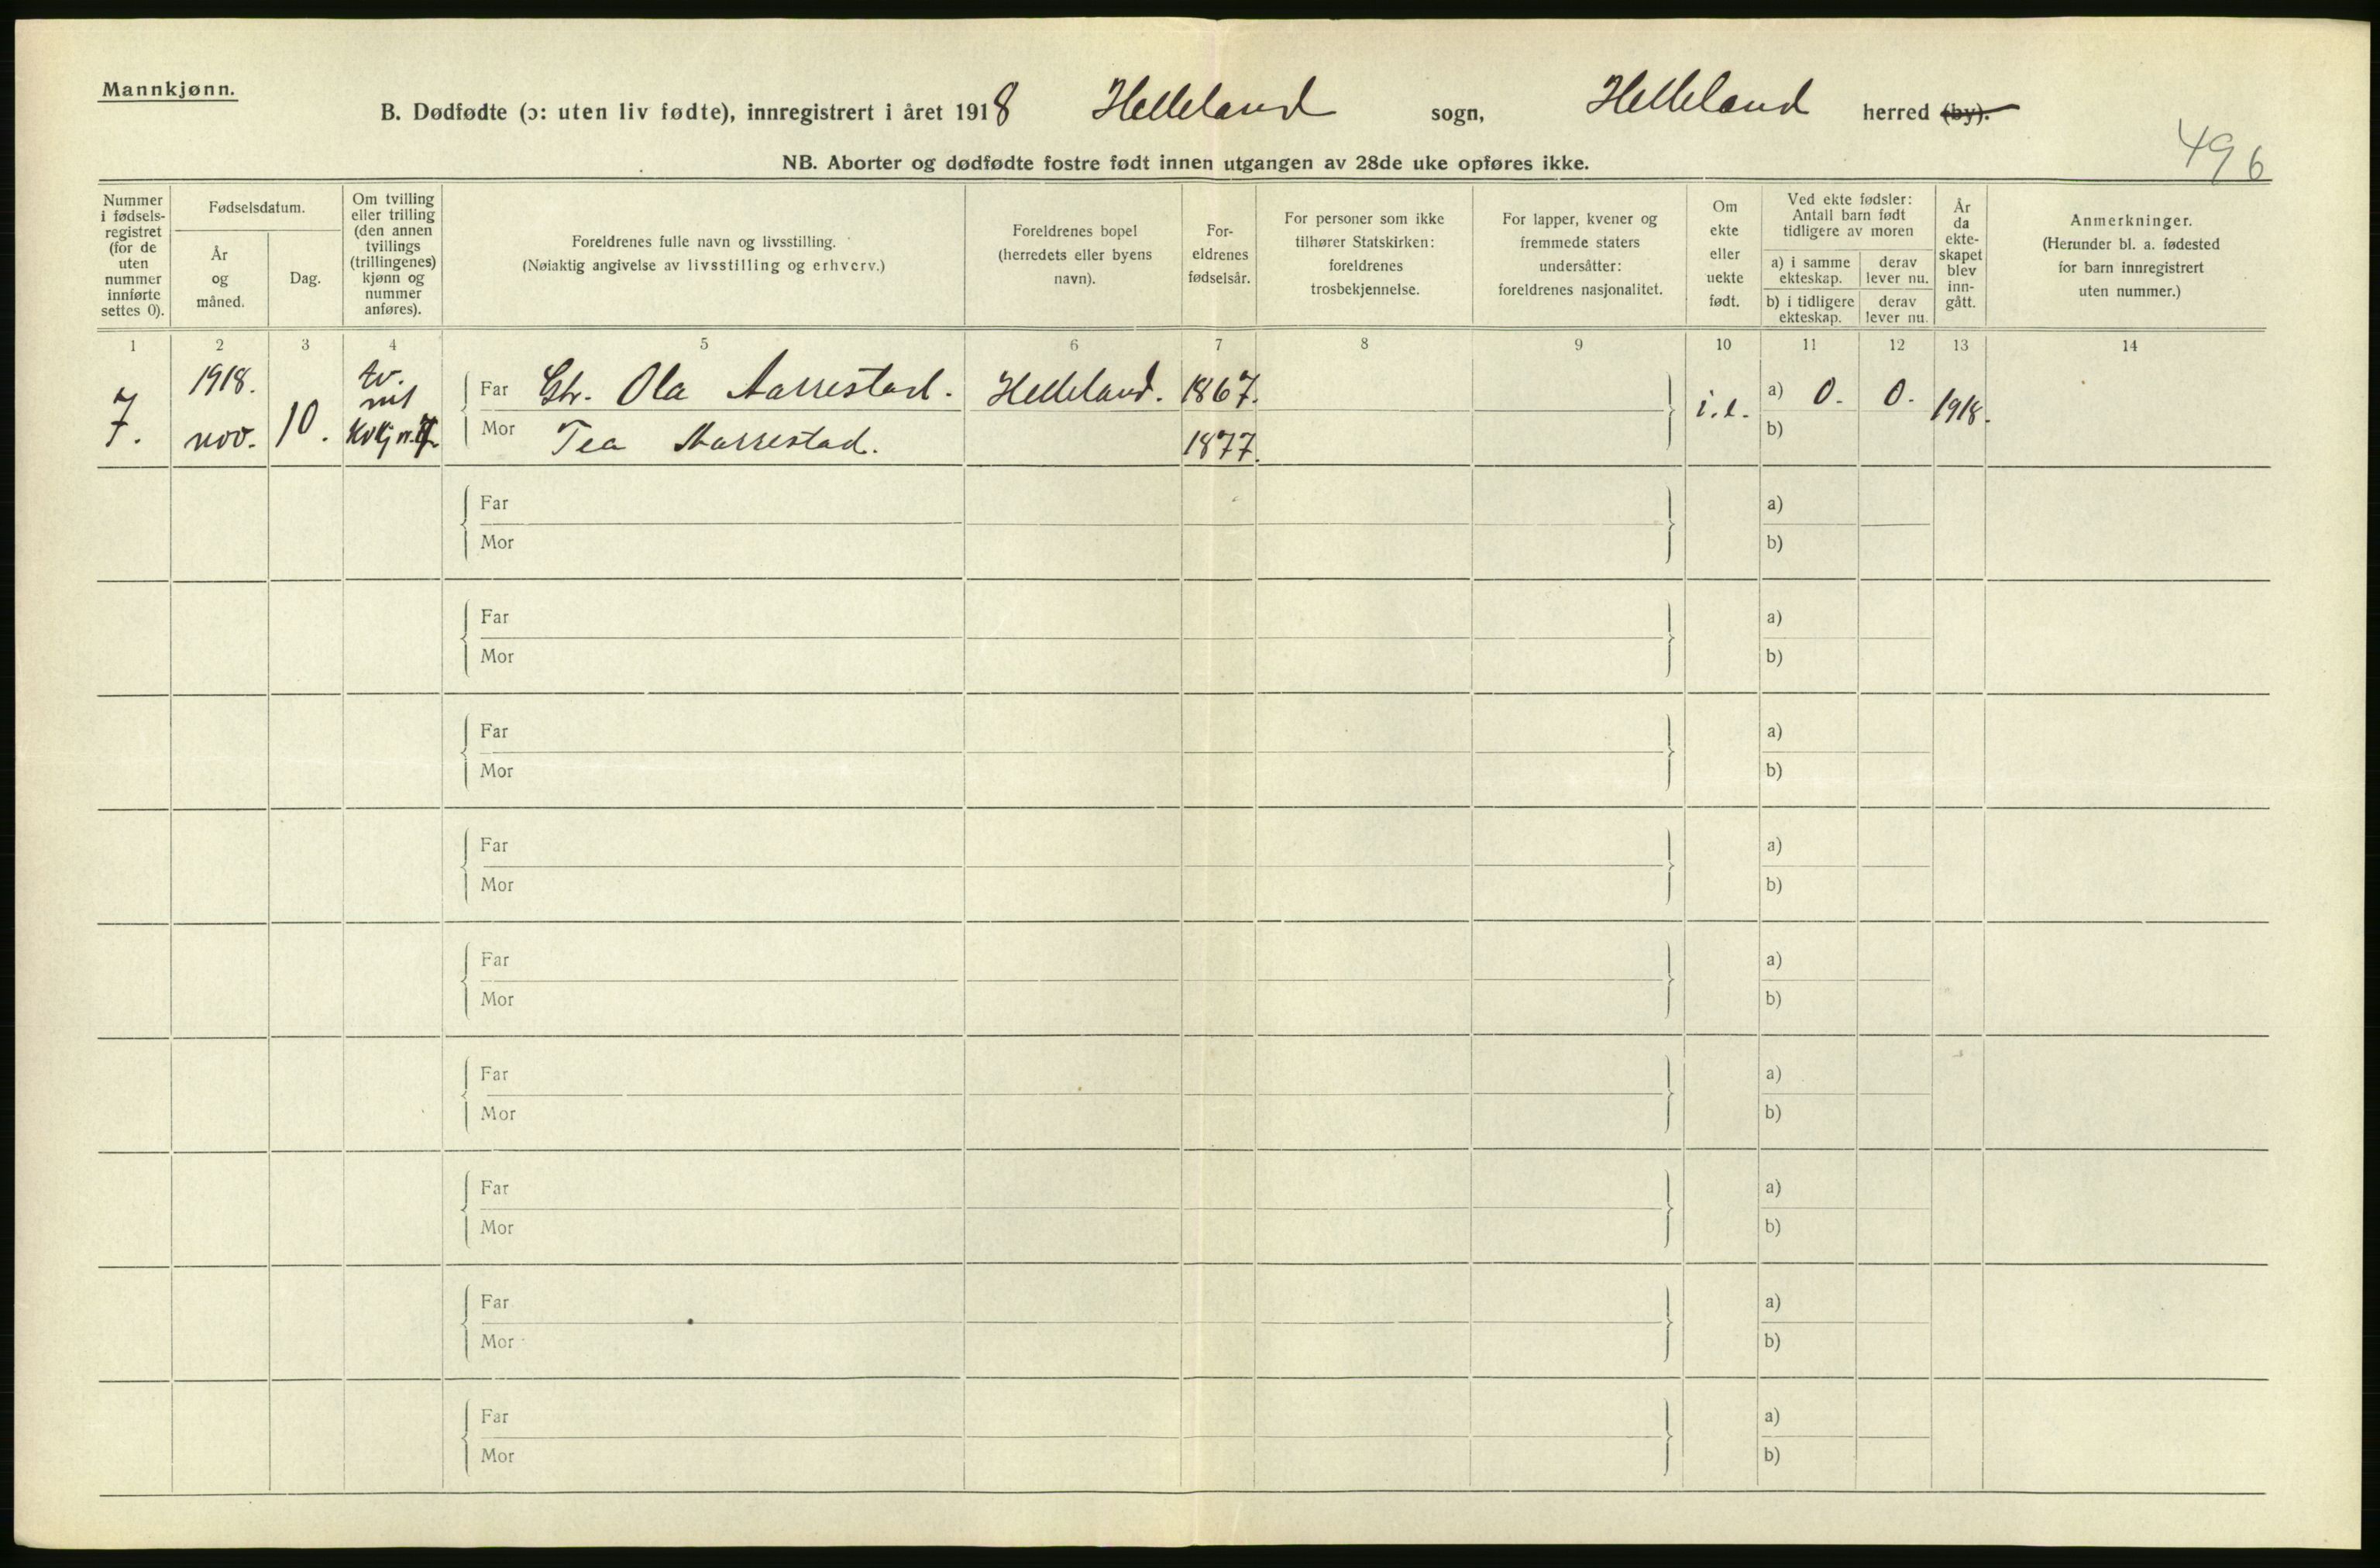 Mannkjønn.
B. Dødfødte (ɔ: uten liv fødte), innregistrert i året 1918 Helleland sogn, Helleland herred (by).
496
NB. Aborter og dødfødte fostre født innen utgangen av 28de uke opføres ikke.
Nummer i fødsels-registret (for de uten nummer innførte settes 0).
Fødselsdatum.
År og måned.
Dag.
Om tvilling eller trilling (den annen tvillings (trillingenes) kjønn og nummer anføres).
Foreldrenes fulle navn og livsstilling.
(Nøiaktig angivelse av livsstilling og erhverv.)
Foreldrenes bopel (herredets eller byens navn).
For-eldrenes fødselsår.
For personer som ikke tilhører Statskirken: foreldrenes trosbekjennelse.
For lapper, kvener og fremmede staters undersåtter: foreldrenes nasjonalitet.
Om ekte eller uekte født.
Ved ekte fødsler: Antall barn født tidligere av moren
a) i samme ekteskap.
derav lever nu.
b) i tidligere ekteskap.
derav lever nu.
År da ekte-skapet blev inn-gått.
Anmerkninger.
(Herunder bl. a. fødested for barn innregistrert uten nummer.)
1 2 3 4 5 6 7 8 9 10 11 12 13 14
7.
1918.
nov.
10.
tv.
Far Gbr. Ola Aarrestad. Helleland. 1867.
Mor Tea Aarrestad. 1877.
i.e.
a) 0. 0.
b)
1918.
Far a)
Mor b)
Far a)
Mor b)
Far a)
Mor b)
Far a)
Mor b)
Far a)
Mor b)
Far a)
Mor b)
Far a)
Mor b)
Far a)
Mor b)
Far a)
Mor b)